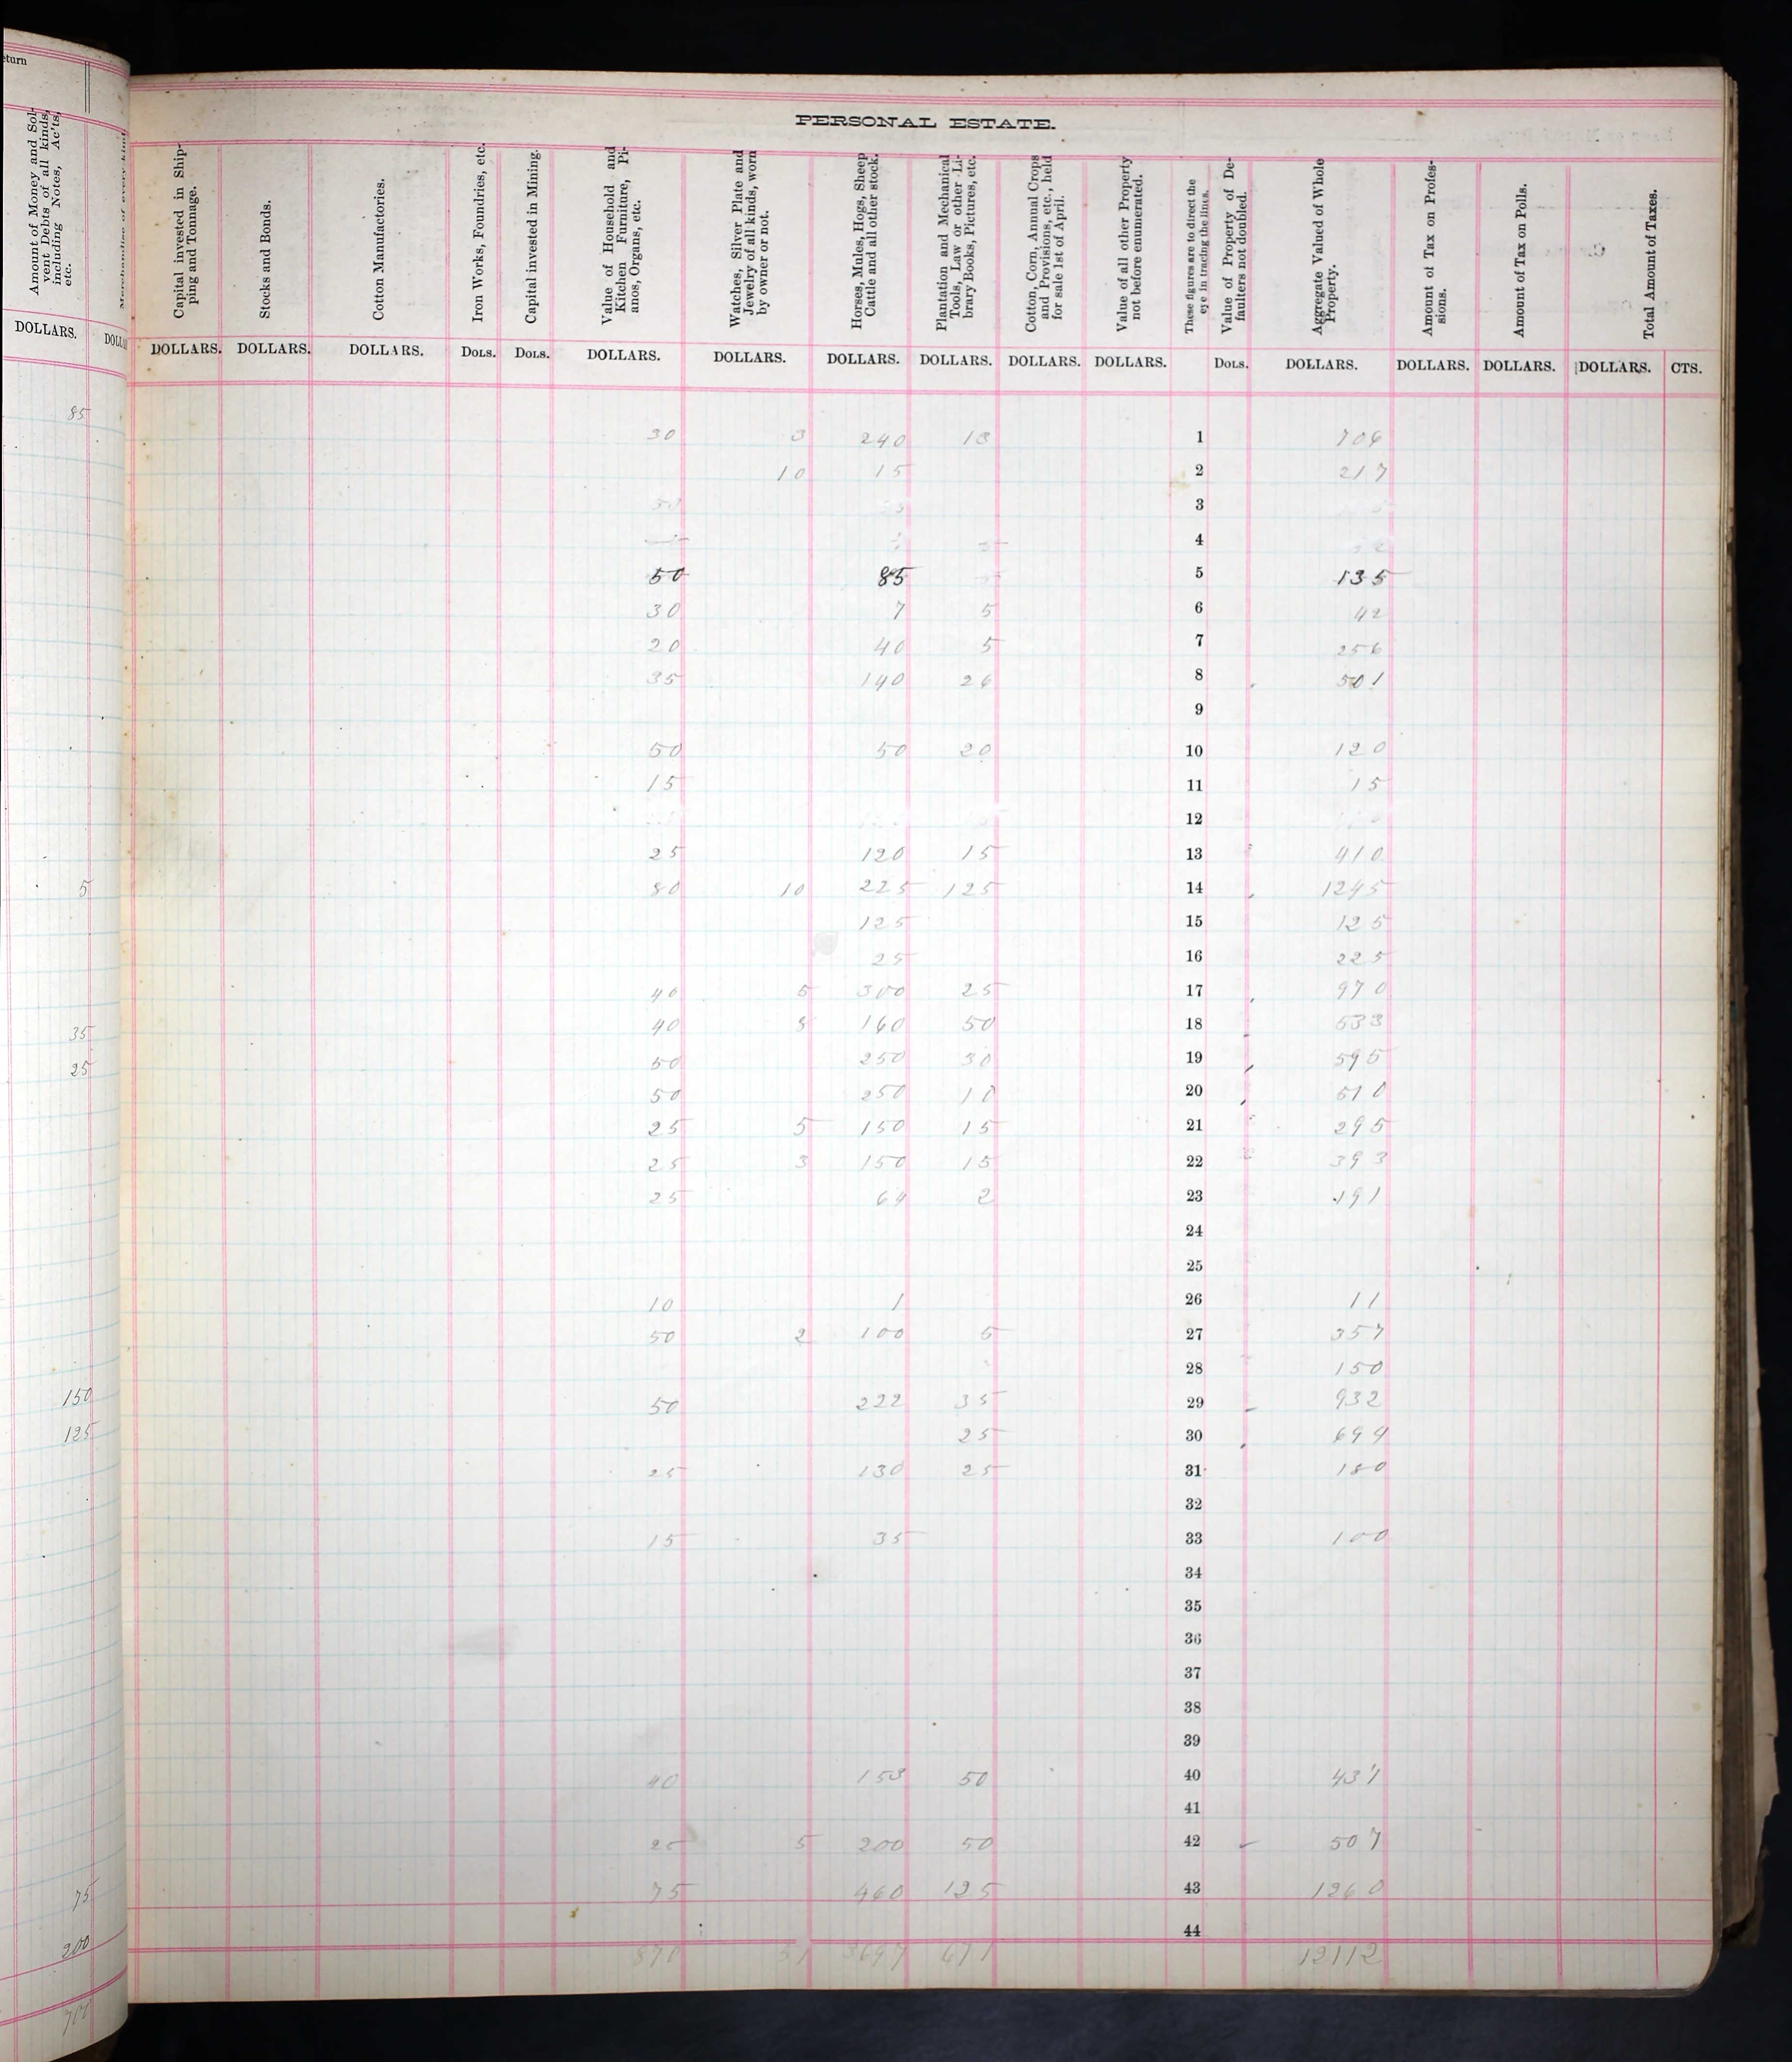 eturn
Amount of Money and Sol-
vent Debts of all kinds,
including Notes, Ac'ts,
etc.
Merchandise of every kind.
DOLLARS.
85
5
35
25
150
125
75
200
PERSONAL ESTATE.
Capital invested in Ship-
ping and Tonnage.
Stocks and Bonds.
Cotton Manufactories.
Iron Works, Foundries, etc.
Capital invested in Mining.
Value of Household and
Kitchen Furniture, Pi-
anos, Organs, etc.
Watches, Silver Plate and
Jewelry of all kinds, worn
by owner or not.
Horses, Mules, Hogs, Sheep
Cattle and all other stock.
Plantation and Mechanical
Tools, Law or other Li-
brary Books, Pictures, etc.
Cotton, Corn, Annual Crops
and Provisions, etc., held
for sale 1st of April.
Value of all other Property
not before enumerated.
These figures are to direct the
eye in tracing the lines.
Value of Property of De-
faulters not doubled.
Aggregate Valued of Whole
Property.
Amount of Tax on Profes-
sions.
Amount of Tax on Polls.
Total Amount of Taxes.
DOLLARS. DOLLARS. DOLLARS. DOLS. DOLS. DOLLARS. DOLLARS. DOLLARS. DOLLARS. DOLLARS. DOLLARS. DOLS. DOLLARS. DOLLARS. DOLLARS. DOLLARS. CTS.
30 3 240 13 1 706
10 15 2 217
3
4
50 85 5 135
30 7 5 6 42
20 40 5 7 256
35 140 26 8 501
9
50 50 20 10 120
15 11 15
12
25 120 15 13 410
80 10 225 125 14 1245
125 15 125
25 16 225
40 5 300 25 17 970
40 8 160 50 18 533
50 250 30 19 595
50 250 10 20 510
25 5 150 15 21 295
25 3 150 15 22 393
25 64 2 23 191
24
25
10 1 26 11
50 2 100 5 27 357
28 150
50 222 35 29 932
25 30 694
25 130 25 31 180
32
15 35 33 100
34
35
36
37
38
39
40 153 50 40 437
41
25 5 200 50 42 507
75 460 125 43 1260
44
870 51 3697 671 12112